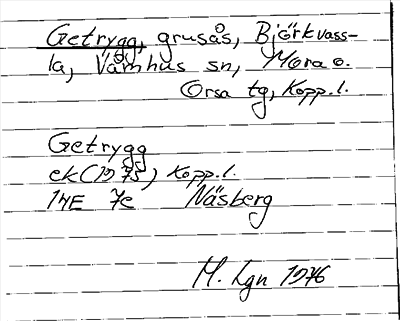 Getrygg, grusås, Björkvass-
la, Våmhus sn, Mora o.
Orsa tg, Kopp.l.
Getrygg
ek (1975) Kopp.l.
14E 7e Näsberg
M. Lgn 1976